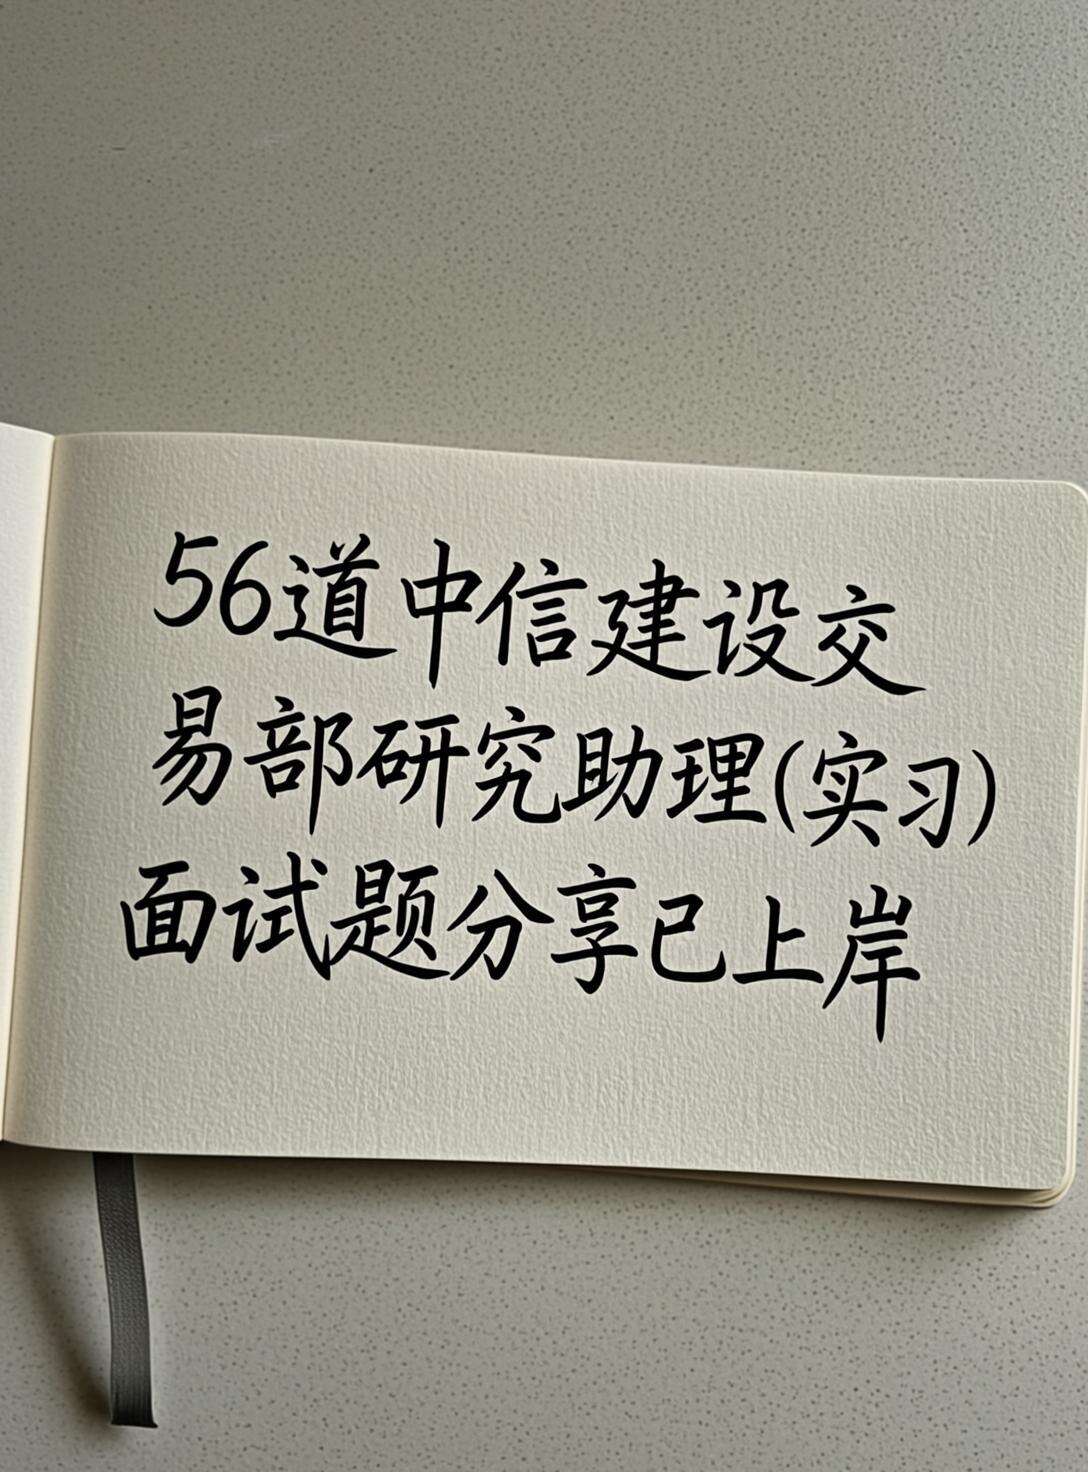 56道中信建设交
易部研究助理(实习)
面试题分享已上岸